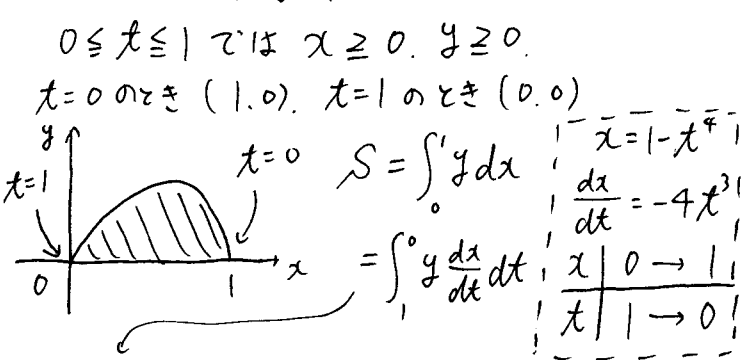 0≦t≦1 では x≧0. y≧0.
t=0 のとき (1.0). t=1 のとき (0.0)
y
t=1
t=0
0
1
x
S=∫₀¹ y dx
=∫₁⁰ y dx/dt dt
x=1-t⁴
dx/dt = -4t³
x | 0 → 1
t | 1 → 0